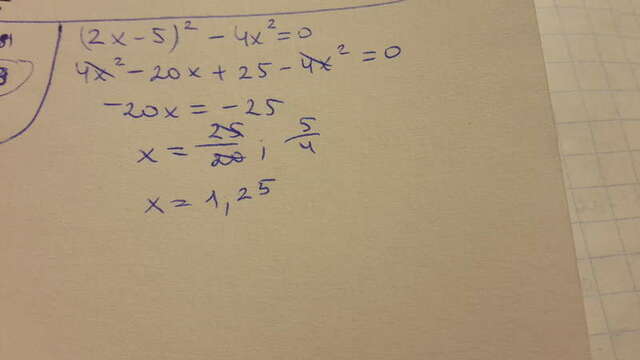 (2x-5)² - 4x² = 0
4x² - 20x + 25 - 4x² = 0
-20x = -25
x = 25/20 ; 5/4
x = 1,25